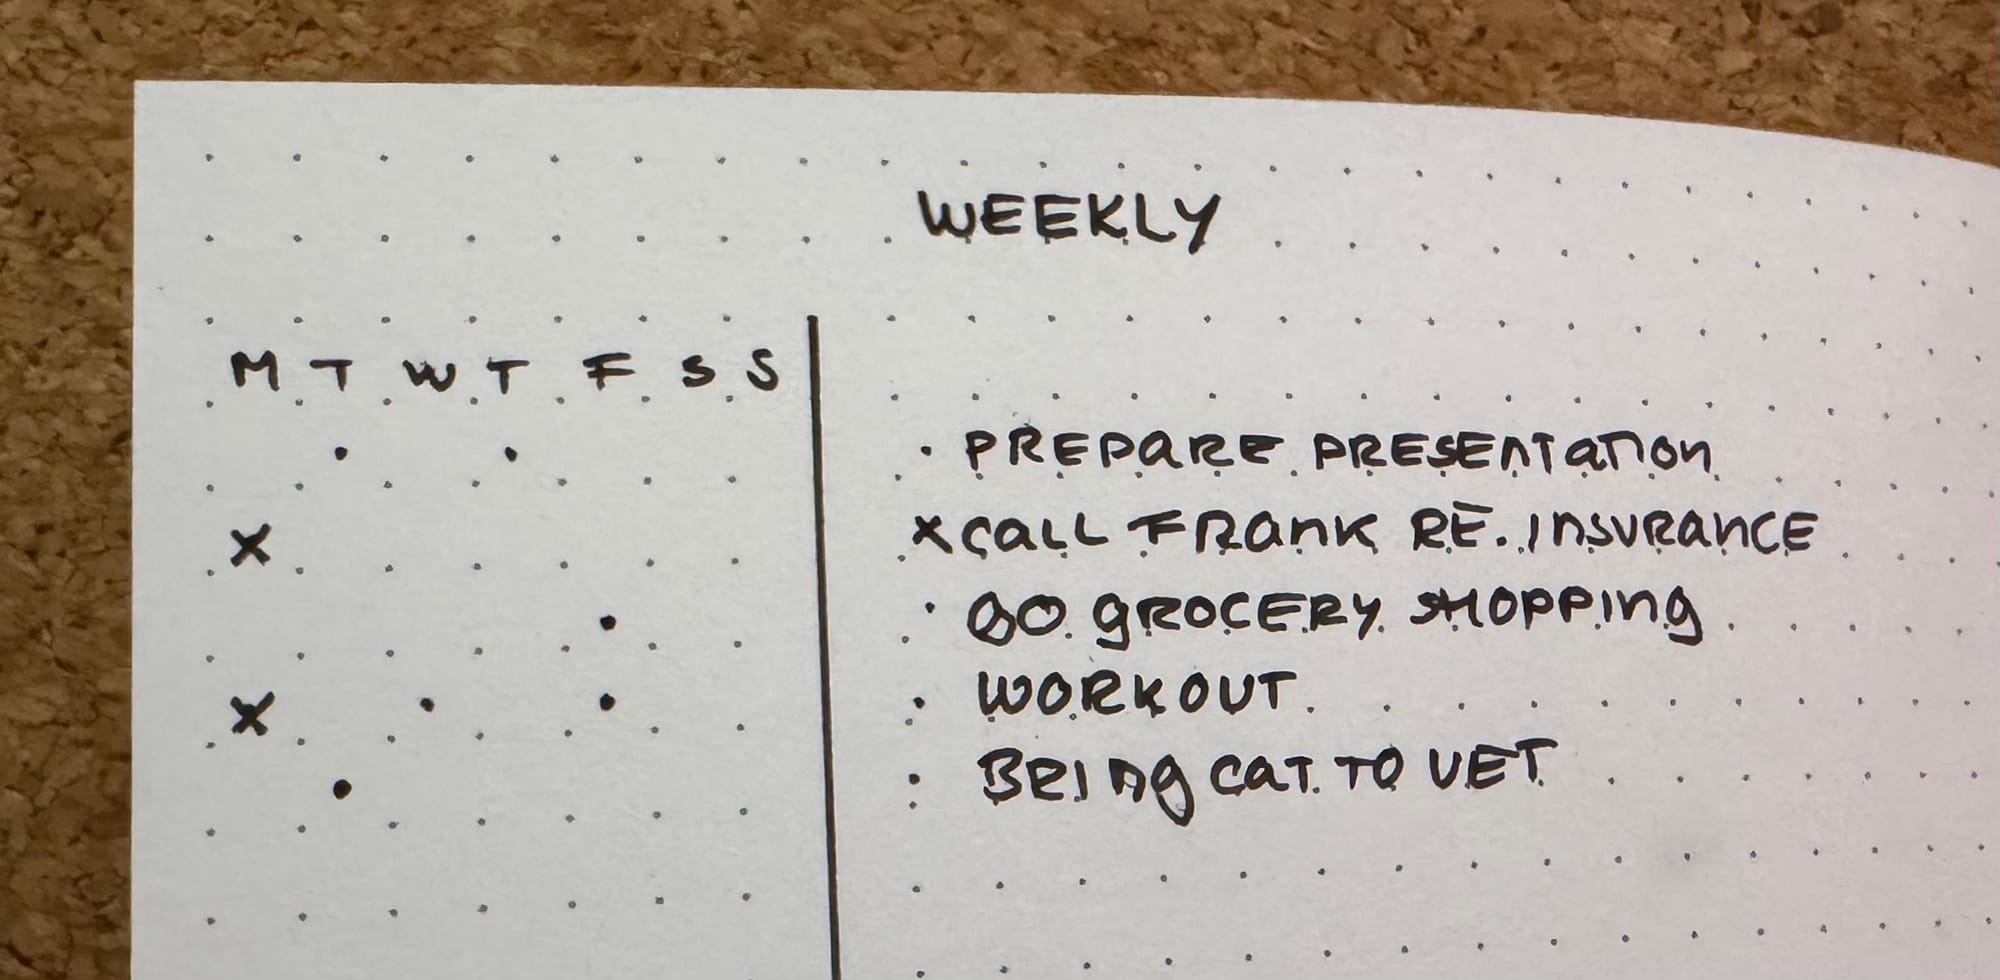 WEEKLY
M T W T F S S
• • • PREPARE PRESENTATION
X X CALL FRANK RE. INSURANCE
• • GO GROCERY SHOPPING
X • • • WORKOUT
• • BRING CAT TO VET